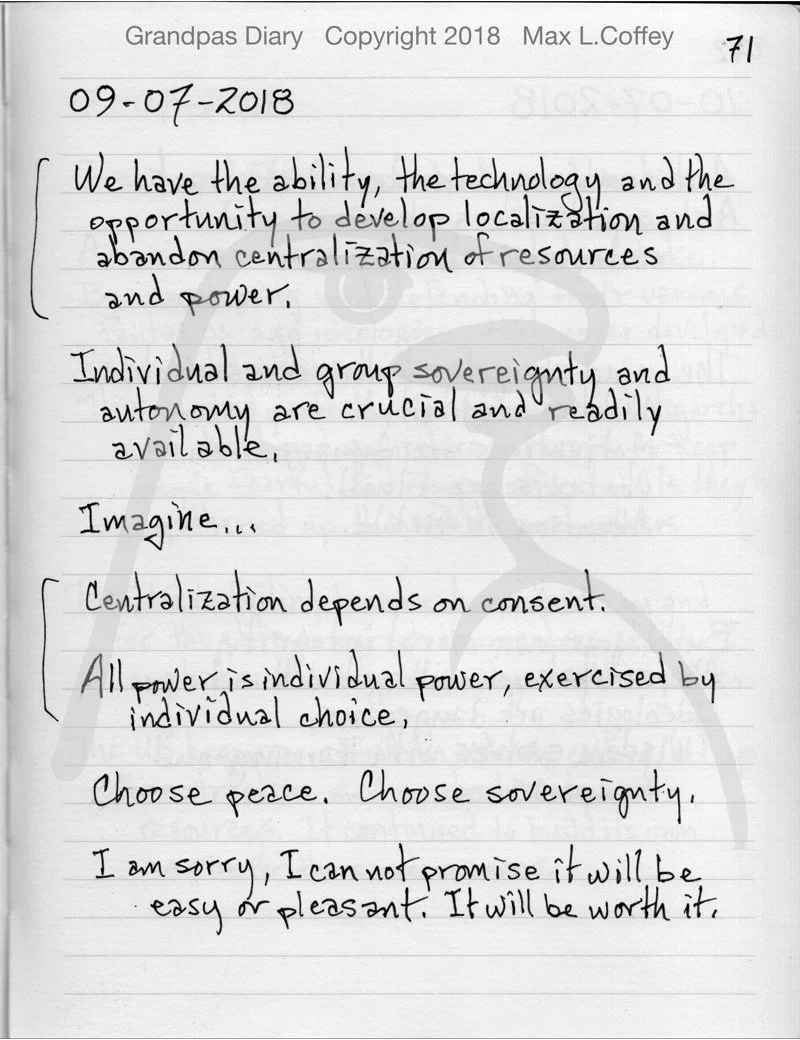 Grandpas Diary Copyright 2018 Max L.Coffey
71
09-07-2018
We have the ability, the technology and the
opportunity to develop localization and
abandon centralization of resources
and power.
Individual and group sovereignty and
autonomy are crucial and readily
available.
Imagine...
Centralization depends on consent.
All power is individual power, exercised by
individual choice.
Choose peace. Choose sovereignty.
I am sorry, I can not promise it will be
easy or pleasant. It will be worth it.